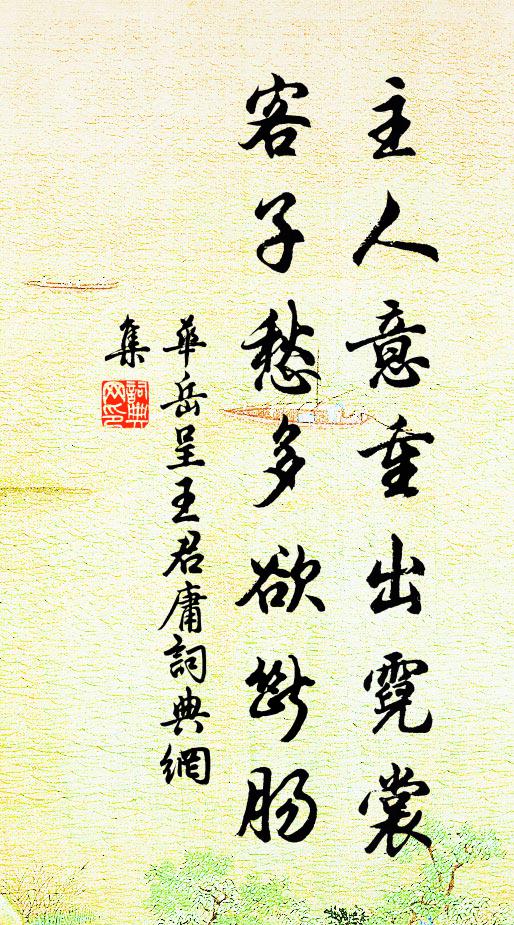 主人意重出霓裳
客子愁多欲断肠
華岳呈王君庸詞典網
集
詞典
网印